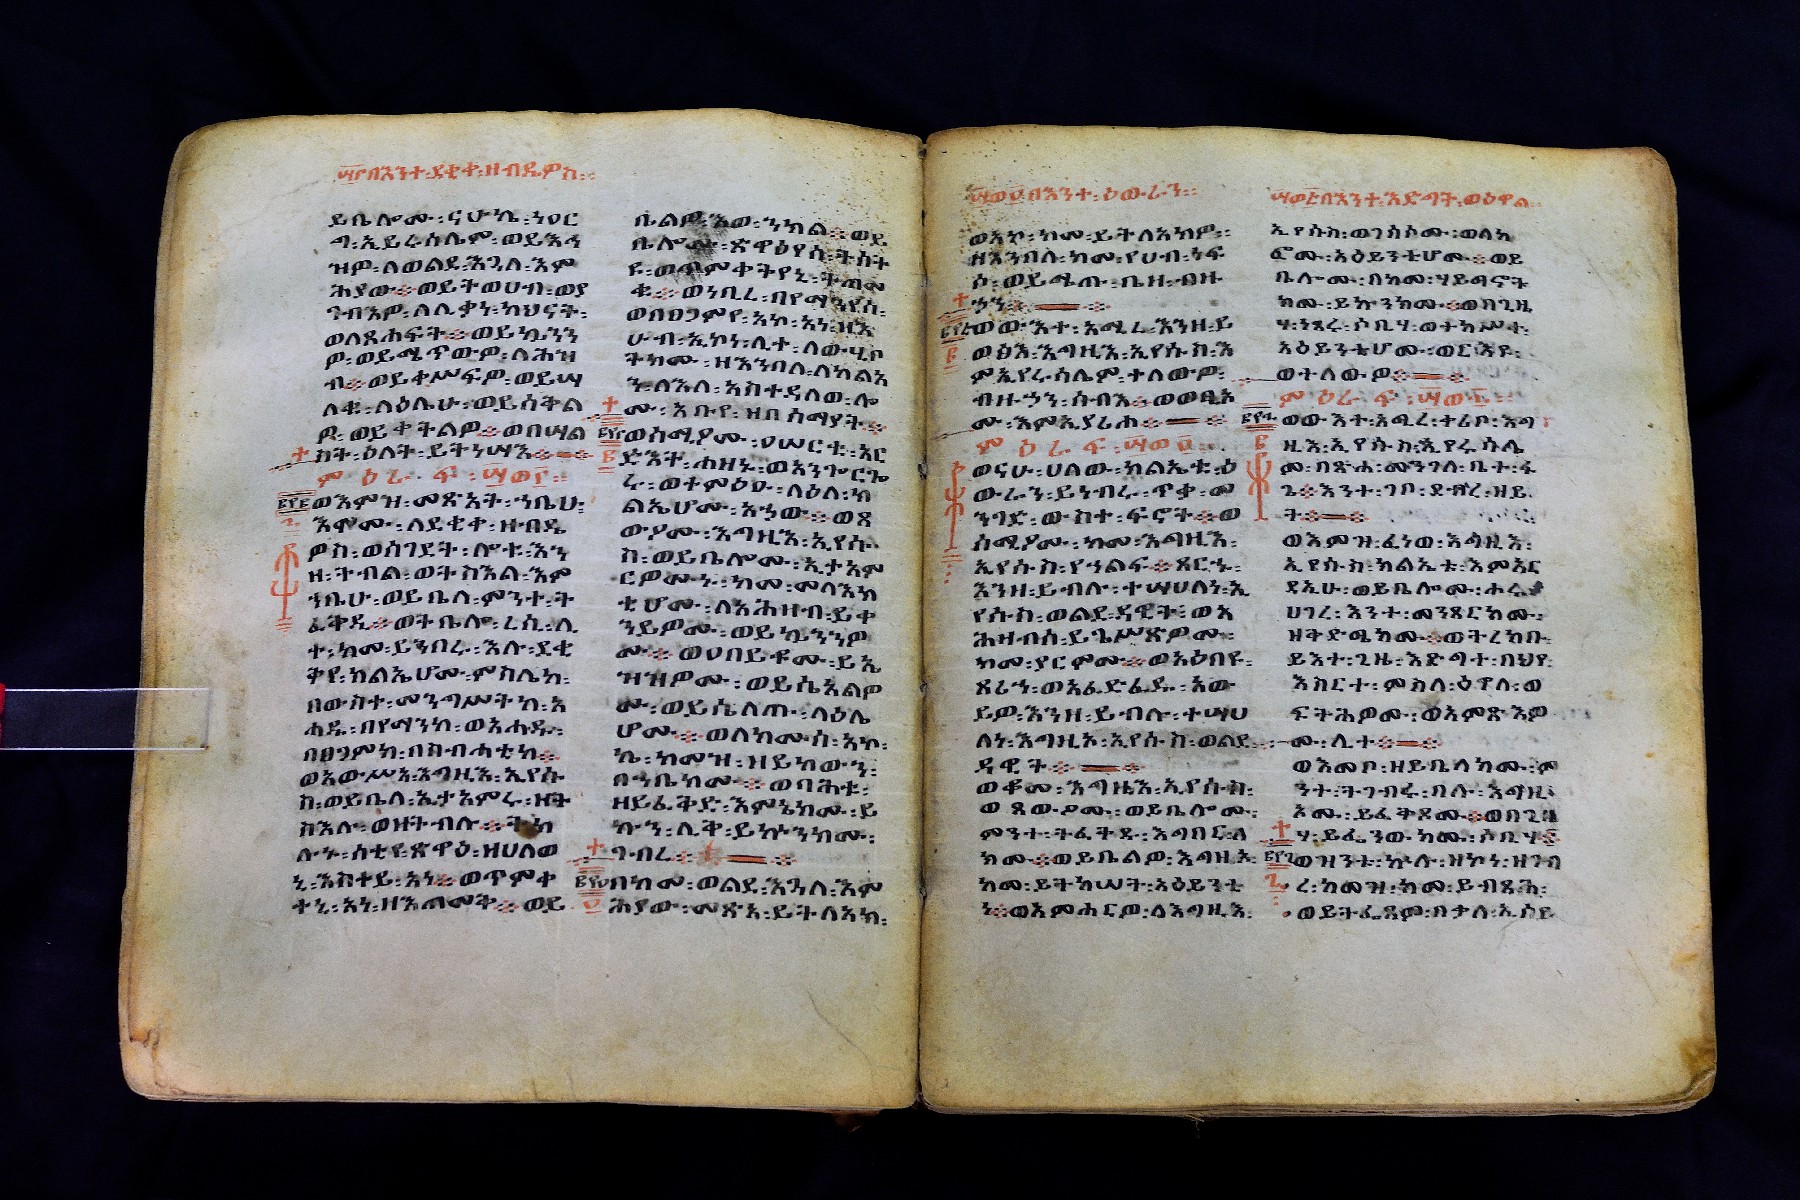 በእንተ፡ደቂቀ፡ዘብዴዎስ።
ይቤሎሙ፡ናሁኬ፡ነዐር
ግ፡ኢይሩሳሌም፡ወይእኅ
ዝዎ፡ለወልደ፡እጓለ፡እም
ሕያው፨ወይትወሀብ፡ወያ
ገብእዎ፡ለሊቃነ፡ካህናት፡
ወለጸሐፍት፨ወይኴንን
ዎ፡ወይሜጥውዎ፡ለሕዝ
ብ፨ወይቀሥፍዎ፡ወይሣ
ለቁ፡ላዕሌሁ፡ወይሰቅል
ዎ፡ወይቀትልዎ፨ወበሣል
ስት፡ዕለት፡ይትነሣእ፨
ምዕራፍ
ወእምዝ፡መጽአት፡ኀቤሁ፡
እሞሙ፡ለደቂቀ፡ዘብዴ
ዎስ፡ወሰገደት፡ሎቱ፡እን
ዘ፡ትብል፡ወትስእል፡እም
ኀቤሁ፡ወይቤላ፡ምንተ፡ት
ፈቅዲ፨ወትቤሎ፡ረሲ፡ሊ
ተ፡ከመ፡ይንበሩ፡እሉ፡ደቂ
ቅየ፡ክልኤሆሙ፡ምስሌከ፡
በውስተ፡መንግሥትከ፡አ
ሐዱ፡በየማንከ፡ወአሐዱ፡
በፀጋምከ፡በስብሐቲከ፨
ወአውሥአ፡እግዚእ፡ኢየሱ
ስ፡ወይቤላ፡ኢታአምሩ፡ዘት
ስእሉ፡ወዘትብሉ፨ትክ
ሉኑ፡ሰቲየ፡ጽዋዕ፡ዘሀለወ
ኒ፡እስተይ፡አነ፨ወጥምቀ
ተኒ፡አነ፡ዘእጠመቅ፨ወይ
ቤልዎ፡እወ፡ንክል፨ወይ
ቤሎሙ፡ጽዋዕየሰ፡ትሰት
ዩ፡ወጥምቀትየኒ፡ትጠመ
ቁ፨ወነቢረ፡በየማንየሰ፡
ወበፀጋምየ፡አኮ፡አነ፡ዘእ
ሁብ፡ኢኮነ፡ሊተ፡ለውሂቦ
ትክሙ፡ዘእንበለ፡ለካልአ
ን፡ለእለ፡አስተዳለወ፡ሎ
ሙ፡አቡየ፡ዘበሰማያት፨
ወሰሚዖሙ፡ዐሠርቱ፡አር
ድእት፡ሐዘኑ፡ወአንጐርጐ
ሩ፡ወተምዕዑ፡ላዕለ፡ክ
ልኤሆሙ፡አኃው፨ወጸ
ውዖሙ፡እግዚእ፡ኢየሱ
ስ፡ወይቤሎሙ፡ኢታአም
ርዎሙኑ፡ከመ፡መላእክ
ቲሆሙ፡ለአሕዛብ፡ይቀ
ንይዎሙ፡ወይኴንንዎ
ሙ፨ወዐበይቶሙ፡ይኤ
ዝዝዎሙ፡ወይሴአልዎ
ሙ፡ወይሴለጡ፡ላዕሌ
ሆሙ፨ወለክሙሰ፡አኮ፡
ኬ፡ከመዝ፡ዘይከውን፡
በኀቤክሙ፨ወባሕቱ፡
ዘይፈቅድ፡እምኔክሙ፡ይ
ኩን፡ሊቅ፡ይኩንክሙ፡
ገብረ፨
በከመ፡ወልደ፡እጓለ፡እም
ሕያው፡መጽአ፡ይትለአክ፡
በእንተ፡ዕውራን።
ወአኮ፡ከመ፡ይትለአክዎ፡
ዘእንበለ፡ከመ፡የሀብ፡ነፍ
ሶ፡ወይሜጡ፡ቤዛ፡ብዙ
ኃን፨
ወውእተ፡አሚረ፡እንዘ፡ይ
ወፅእ፡እግዚእ፡ኢየሱስ፡እ
ምኢየሩሳሌም፡ተለውዎ፡
ብዙኃን፡ሰብእ፨ወወፂአ
ሙ፡እምኢያሪሖ፨
ምዕራፍ
ወናሁ፡ሀለው፡ክልኤቱ፡ዕ
ውራን፡ይነብሩ፡ጥቃ፡መ
ንገድ፡ውስተ፡ፍኖት፨ወ
ሰሚዖሙ፡ከመ፡እግዚእ፡
ኢየሱስ፡የኀልፍ፨ጸርኁ፡
እንዘ፡ይብሉ፡ተሣሀለነ፡ኢ
የሱስ፡ወልደ፡ዳዊት፡ወአ
ሕዛብሰ፡ይጌሥጽዎሙ፡
ከመ፡ያርምሙ፨ወአዕበዩ፡
ጸሪኀ፡ወአፈድፈዱ፡አው
ይዎ፡እንዘ፡ይብሉ፡ተሣሀ
ለነ፡እግዚእ፡ኢየሱስ፡ወልደ፡
ዳዊት፨
ወቆመ፡እግዚእ፡ኢየሱስ፡
ወጸውዖሙ፡ወይቤሎሙ፡
ምንተ፡ትፈትዱ፡እግበር፡ለ
ክሙ፨ወይቤልዎ፡እግዚኦ፡
ከመ፡ይትከሠት፡አዕይንቲ
ነ፨ወአምሐርዎ፡ለእግዚእ፡
በእንተ፡እድግት፡ወዕዋል።
ኢየሱስ፡ወገሰሶሙ፡ወለከ
ፎሙ፡አዕይንቲሆሙ፨ወይ
ቤሎሙ፡በከመ፡ሃይማኖት
ክሙ፡ይኩንክሙ፨ወበጊዜ
ሃ፡ነጸሩ፡ሶቤሃ፡ወተከሥተ፡
አዕይንቲሆሙ፡ወርእዩ፡
ወተለውዎ፨
ምዕራፍ
ወውእተ፡አሚረ፡ተሪቦ፡እግ
ዚእ፡ኢየሱስ፡ኢየሩሳሌ
መ፡በጽሐ፡መንገለ፡ቤተ፡ፋ
ጌ፨እንተ፡ገቦ፡ደብረ፡ዘይ
ት፨
ወእምዝ፡ፈነወ፡እግዚእ፡
ኢየሱስ፡ክልኤቱ፡እምአር
ዳኢሁ፡ወይቤሎሙ፡ሑሩ፡
ሀገረ፡እንተ፡መንጸርክሙ፡
ዘቅድሜክሙ፨ወትረክቡ፡
ይእተ፡ጊዜ፡እድግተ፡በህየ፡
እስርተ፡ምስለ፡ዕዋላ፡ወ
ፍትሕዎሙ፡ወአምጽእዎ
ሙ፡ሊተ፨
ወእመቦ፡ዘይቤለክሙ፡ም
ንተ፡ትገብሩ፡በሉ፡እግዚ
ኦሙ፡ይፈቅዶሙ፨ወበጊዜ
ሃ፡ይፌንወክሙ፡ሶቤሃ፨
ወዝንቱ፡ኵሉ፡ዘኮነ፡ዘገብ
ረ፡ከመዝ፡ከመ፡ይብጻሕ፡
ወይትፈጸም፡በቃለ፡ኢሳይ